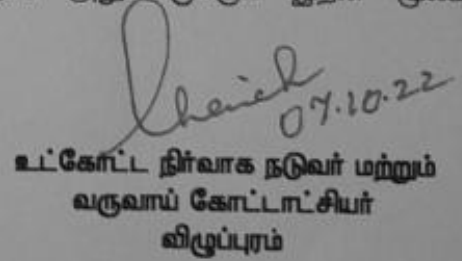 07.10.22
உட்கோட்ட நிர்வாக நடுவர் மற்றும்
வருவாய் கோட்டாட்சியர்
விழுப்புரம்